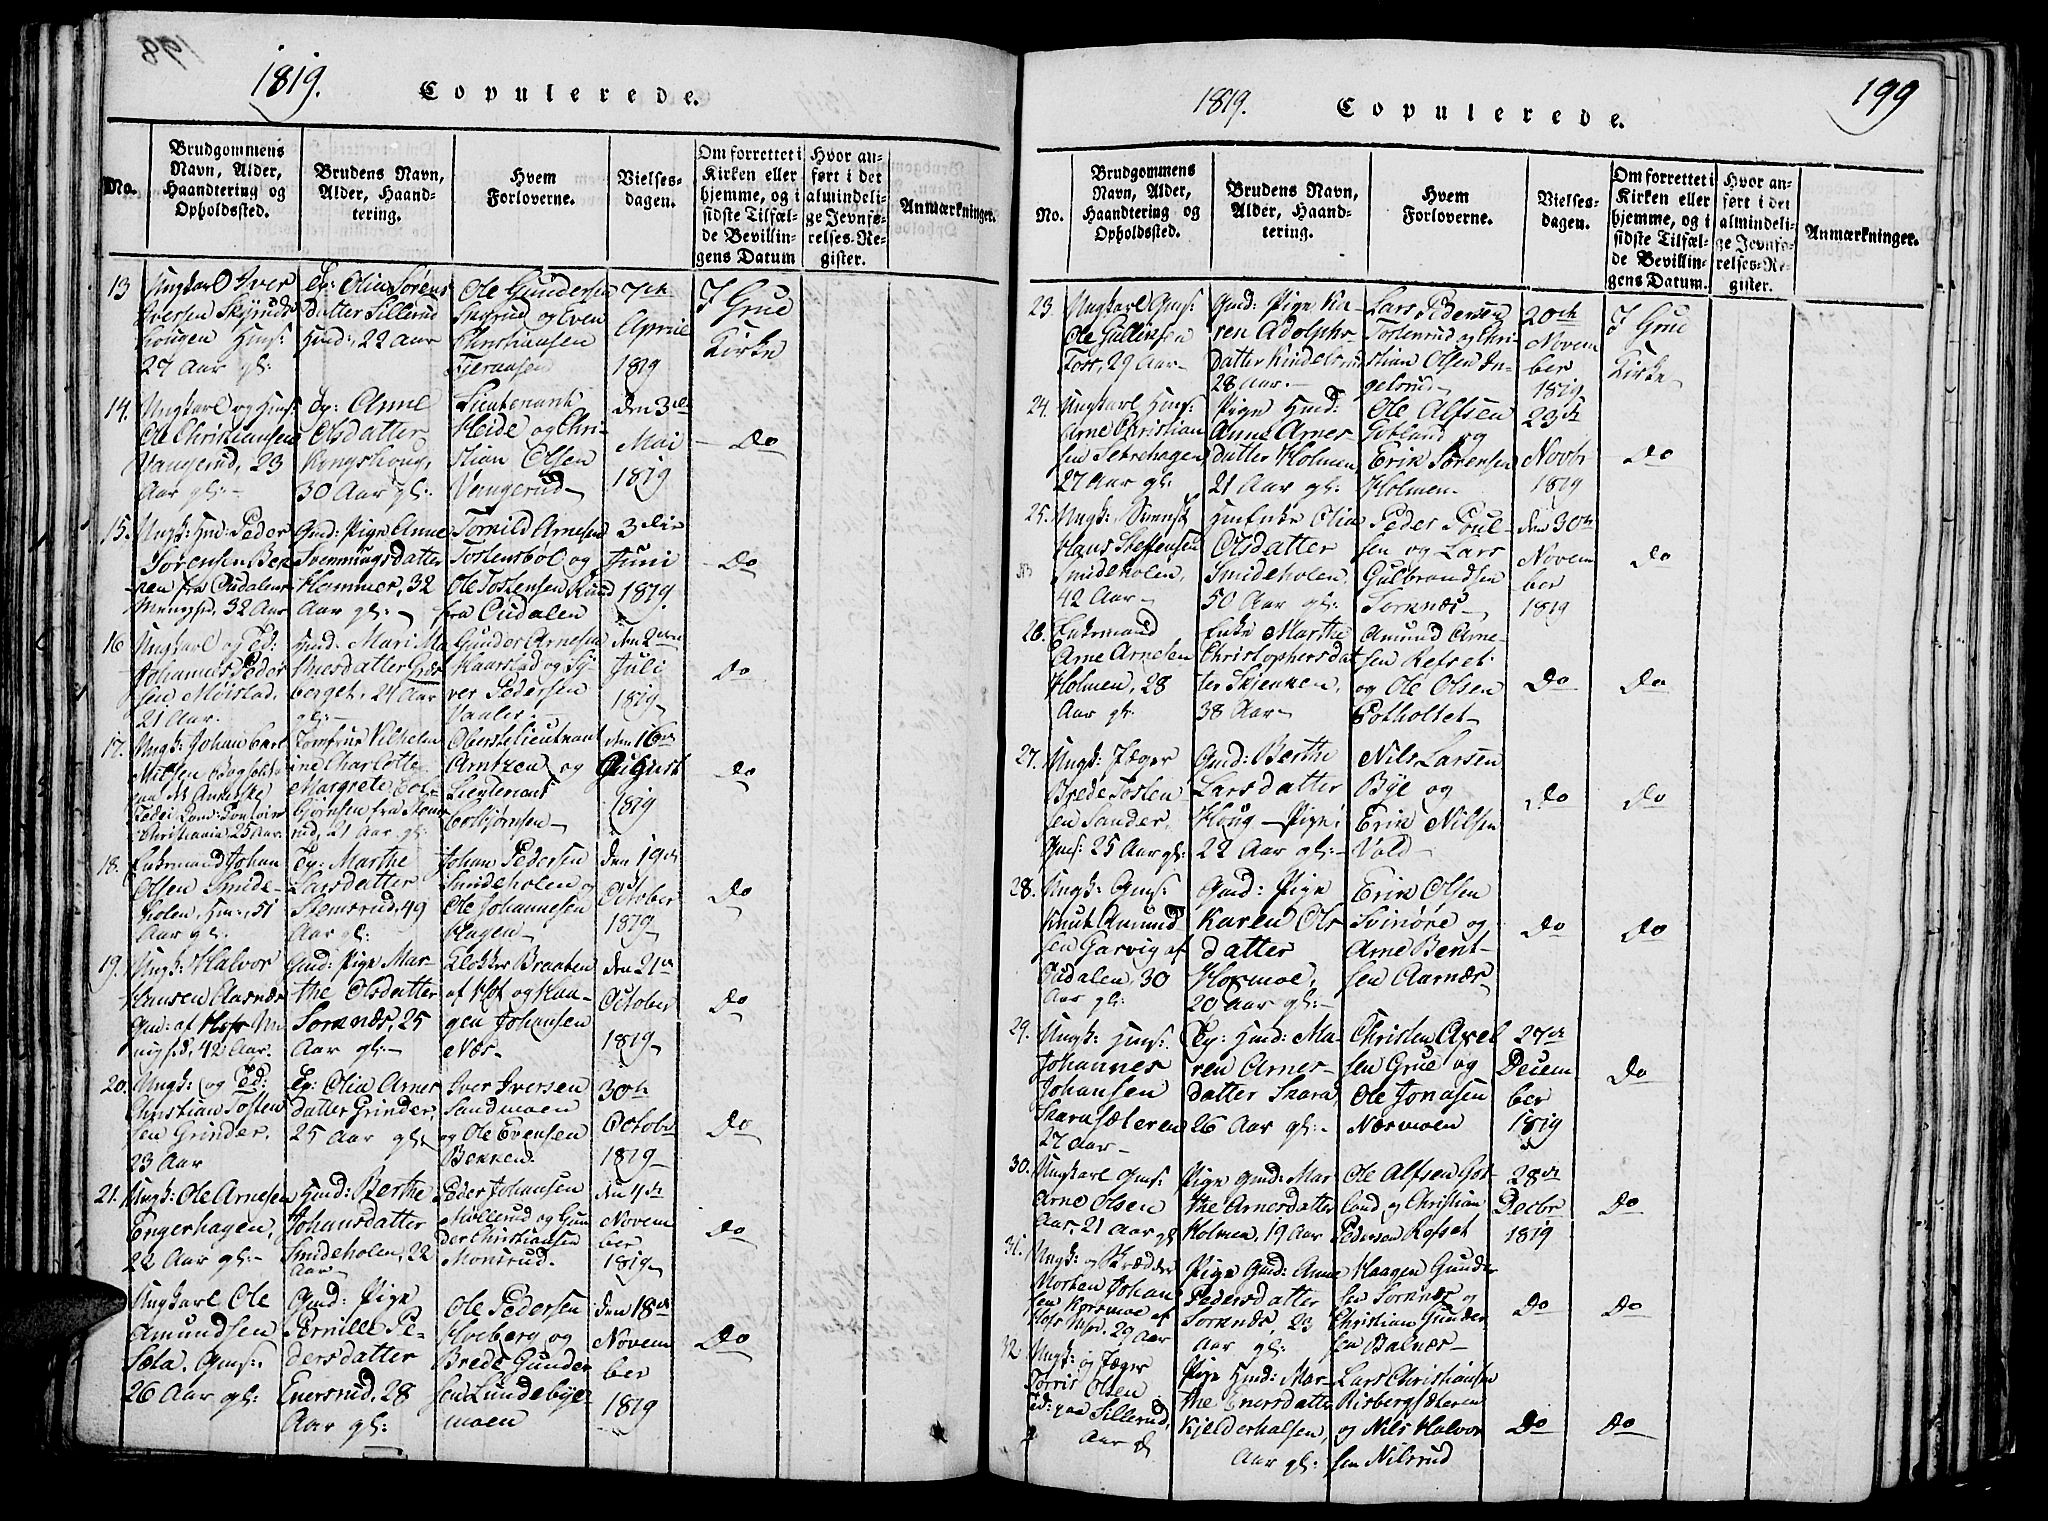 1819.
Copulerede.
No.
Brudgommens Navn, Alder, Haandtering og Opholdssted.
Brudens Navn, Alder, Haandtering.
Hvem Forloverne.
Vielsesdagen.
Om forrettet i Kirken eller hjemme, og i sidste Tilfælde Bevillingens Datum
Hvor anført i det almindelige Jevnførelses-Register.
Anmærkninger.
13 Ungkarl Iver Iversen Skyrudshougen Hms: 27 Aar gl:
Ep: Olia Sørensdatter Sillerud Hmd: 22 Aar
Ole Gundersen Skyrud og Even Christiansen
7de April 1819
I Grue Kirke
14. Ungkarl og Hms: Ole Christiansen Vangerud, 23 Aar gl:
Ep: Anne Olsdatter Kongshoug, 30 Aar gl:
Lieutenant Heide og Christian Olsen Vengerud
den 3die Mai 1819
Do
15. Ungk: Hmd: Peder Sørensen fra Oudalens 32 Aar
Gmd: Pige Anne Svenningsdatter Hammer, 32 Aar gl:
Tornild Arnesen Tostensbøl og Ole Tostensen Rund fra Oudalen
3die Juni 1819.
Do
16 Ungkarl og Johannes Pedersen Moistad, 21 Aar.
Gmd: Mari berget, 24 Aar gl:
Gunder Arnesen Kaarstad og Syver Pedersen Vaaler.
den 2den Juli 1819
Do
17. Ungk: Johan Carl Christiania 25 Aar.
Jomfrue Vilhelmine Charlotte Margrete Colbjørnsen fra 21 Aar gl:
Oberstelieutnant Arntzen og Lieutenant Colbjørnsen
den 16de August 1819
Do
18. Enkemand Johan Olsen Smideholen, Hms:, 51 Aar gl:
Ep: Marthe Larsdatter Stemsrud, 49 Aar gl:
Johan Pedersen Smideholen og Ole Johannesen Hagen
den 19de October 1819
Do
19. Ungk: Halvor Hansen Aasnæs Gmd: af Hofs 42 Aar.
Gmd: Pige Marthe Olsdatter Sorknæs, 25 Aar gl:
Klokker Braaten af Hof og Haagen Johansen Næs
den 21de October 1819
Do
20. Ungk: og Christian Tostensen Grinder, 23 Aar
Ep: Olia Arnesdatter Grinder, 25 Aar gl:
Iver Iversen Sandmoen og Ole Evensen Bekken
30te Octobr 1819
Do
21. Ungk: Ole Arnesen Engerhagen, 22 Aar gl:
Hmd: Berthe Johansdatter Smideholen, 22 Aar
Peder Johansen Møllerud og Gunder Christiansen Monsrud.
den 4de November 1819
Do
Ungkarl Ole Amundsen Sæta, Gms: 26 Aar gl:
Gmd: Pige Pernille Pedersdatter Enersrud, 28 Aar gl:
Ole Pedersen Hveberg og Brede Gundersen Lundebyemoen
den 18de November 1819
Do
199
1819.
Copulerede.
No.
Brudgommens Navn, Alder, Haandtering og Opholdssted.
Brudens Navn, Alder, Haandtering.
Hvem Forloverne.
Vielsesdagen.
Om forrettet i Kirken eller hjemme, og i sidste Tilfælde Bevillingens Datum.
Hvor anført i det almindelige Jevnførelses-Register.
Anmærkninger.
23. Ungkarl Gms: Ole Gullensen Tost, 29 Aar
Gmd: Pige Karen Adolphsdatter 28 Aar.
Lars Pedersen Tostenrud og Christian Olsen Ingelsrud
20de November 1819
I Grue Kirke
24. Ungkarl Hms: Arne Christiansen Sætrehagen 27 Aar gl:
Pige Hmd: Anne Arnesdatter Holmen, 21 Aar gl:
Ole Alfsen Gotland og Erik Sørensen Holmen
23de Novb 1819
Do
25. Ungk: Svensk Hans Steffensen Smideholen, 42 Aar
HmEnke Olia Olsdatter Smideholen, 50 Aar gl:
Peder Poulsen og Lars Gulbrandsen Sorknæs
den 30te November 1819
Do
26. Enkemand Arne Arnesen Holmen, 28 Aar gl:
Enke Marthe Christophersdatter Skjenken, 38 Aar
Amund Arnesen Refset og Ole Olsen Potholtet
Do
Do
27. Ungk: Jæger Brede Tostensen Sander, Gms: 25 Aar gl:
Gmd: Berthe Larsdatter Houg Pige: 22 Aar gl:
Nils Larsen Bye og Erik Nilsen Vold
Do
Do
28. Ungk: Gms: Knut Amundsen Garvig af Oudalen, 30 Aar gl:
Gmd: Pige Karen Olsdatter Hormoe, 20 Aar gl:
Erik Olsen Svinøre og Arne Bentsen Aarnæs
Do
Do
29. Ungk: Hms: Johannes Johansen Skarasæteren 27 Aar
Ep: Hmd: Maren Arnesdatter Skara, 26 Aar gl:
Christen Axelsen Grue og Ole Jonasen Næsmoen
27de December 1819
Do
30. Ungkarl Gms: Arne Olsen Aar, 21 Aar gl
Pige Gmd: Marthe Arnesdatter Holmen, 19 Aar
Ole Alfsen Gotland og Christian Pedersen Refset
28de Decbr 1819
Do
31. Ungk: og Skrædder Morten Johansen Korsmoe af Hofs 29 Aar
Pige Gmd: Anne Pedersdatter Sorknæs, 23 Aar gl:
Haagen Gundersen Sorknæs og Christian Gundersen Balnæs
Do
Do
32 Ungk: og Jæger Torris Olsen paa Sillerud, Aar gl
Pige Hmd: Marthe Enersdatter Kjelderhalsen, Aar gl:
Lars Christiansen Risbergsæteren og Nils Halvorsen Nilsrud
Do
Do